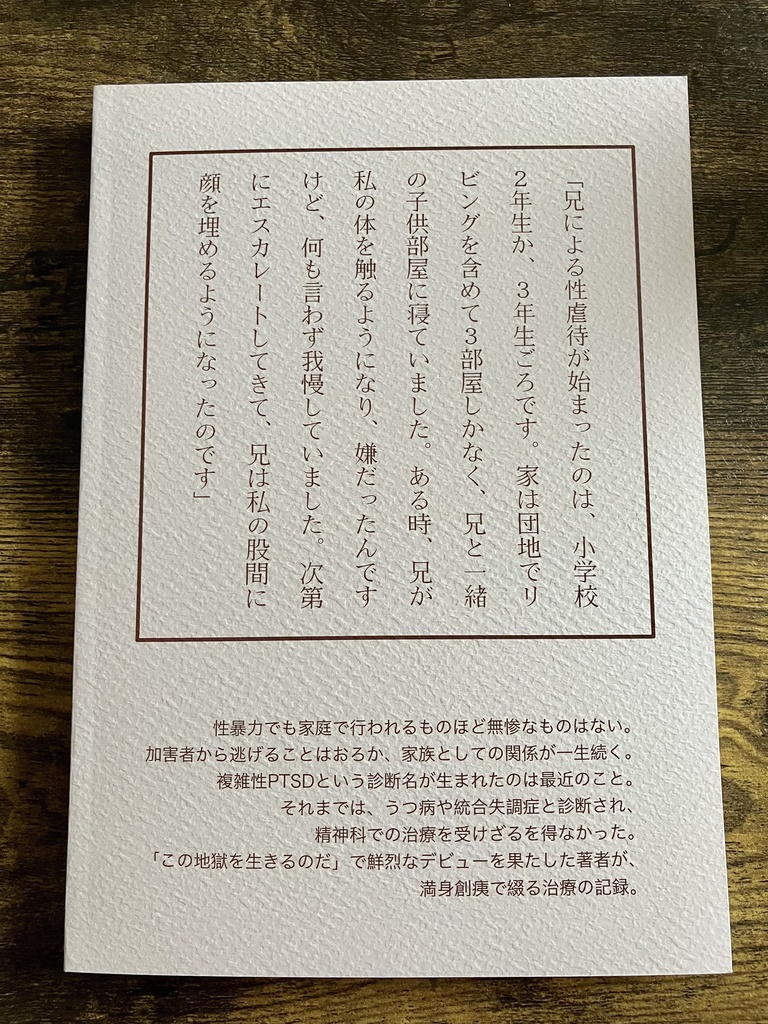 「兄による性虐待が始まったのは、小学校
2年生か、3年生ごろです。家は団地でリ
ビングを含めて3部屋しかなく、兄と一緒
の子供部屋に寝ていました。ある時、兄が
私の体を触るようになり、嫌だったんです
けど、何も言わず我慢していました。次第
にエスカレートしてきて、兄は私の股間に
顔を埋めるようになったのです」
性暴力でも家庭で行われるものほど無惨なものはない。
加害者から逃げることはおろか、家族としての関係が一生続く。
複雑性PTSDという診断名が生まれたのは最近のこと。
それまでは、うつ病や統合失調症と診断され、
精神科での治療を受けざるを得なかった。
「この地獄を生きるのだ」で鮮烈なデビューを果たした著者が、
満身創痍で綴る治療の記録。